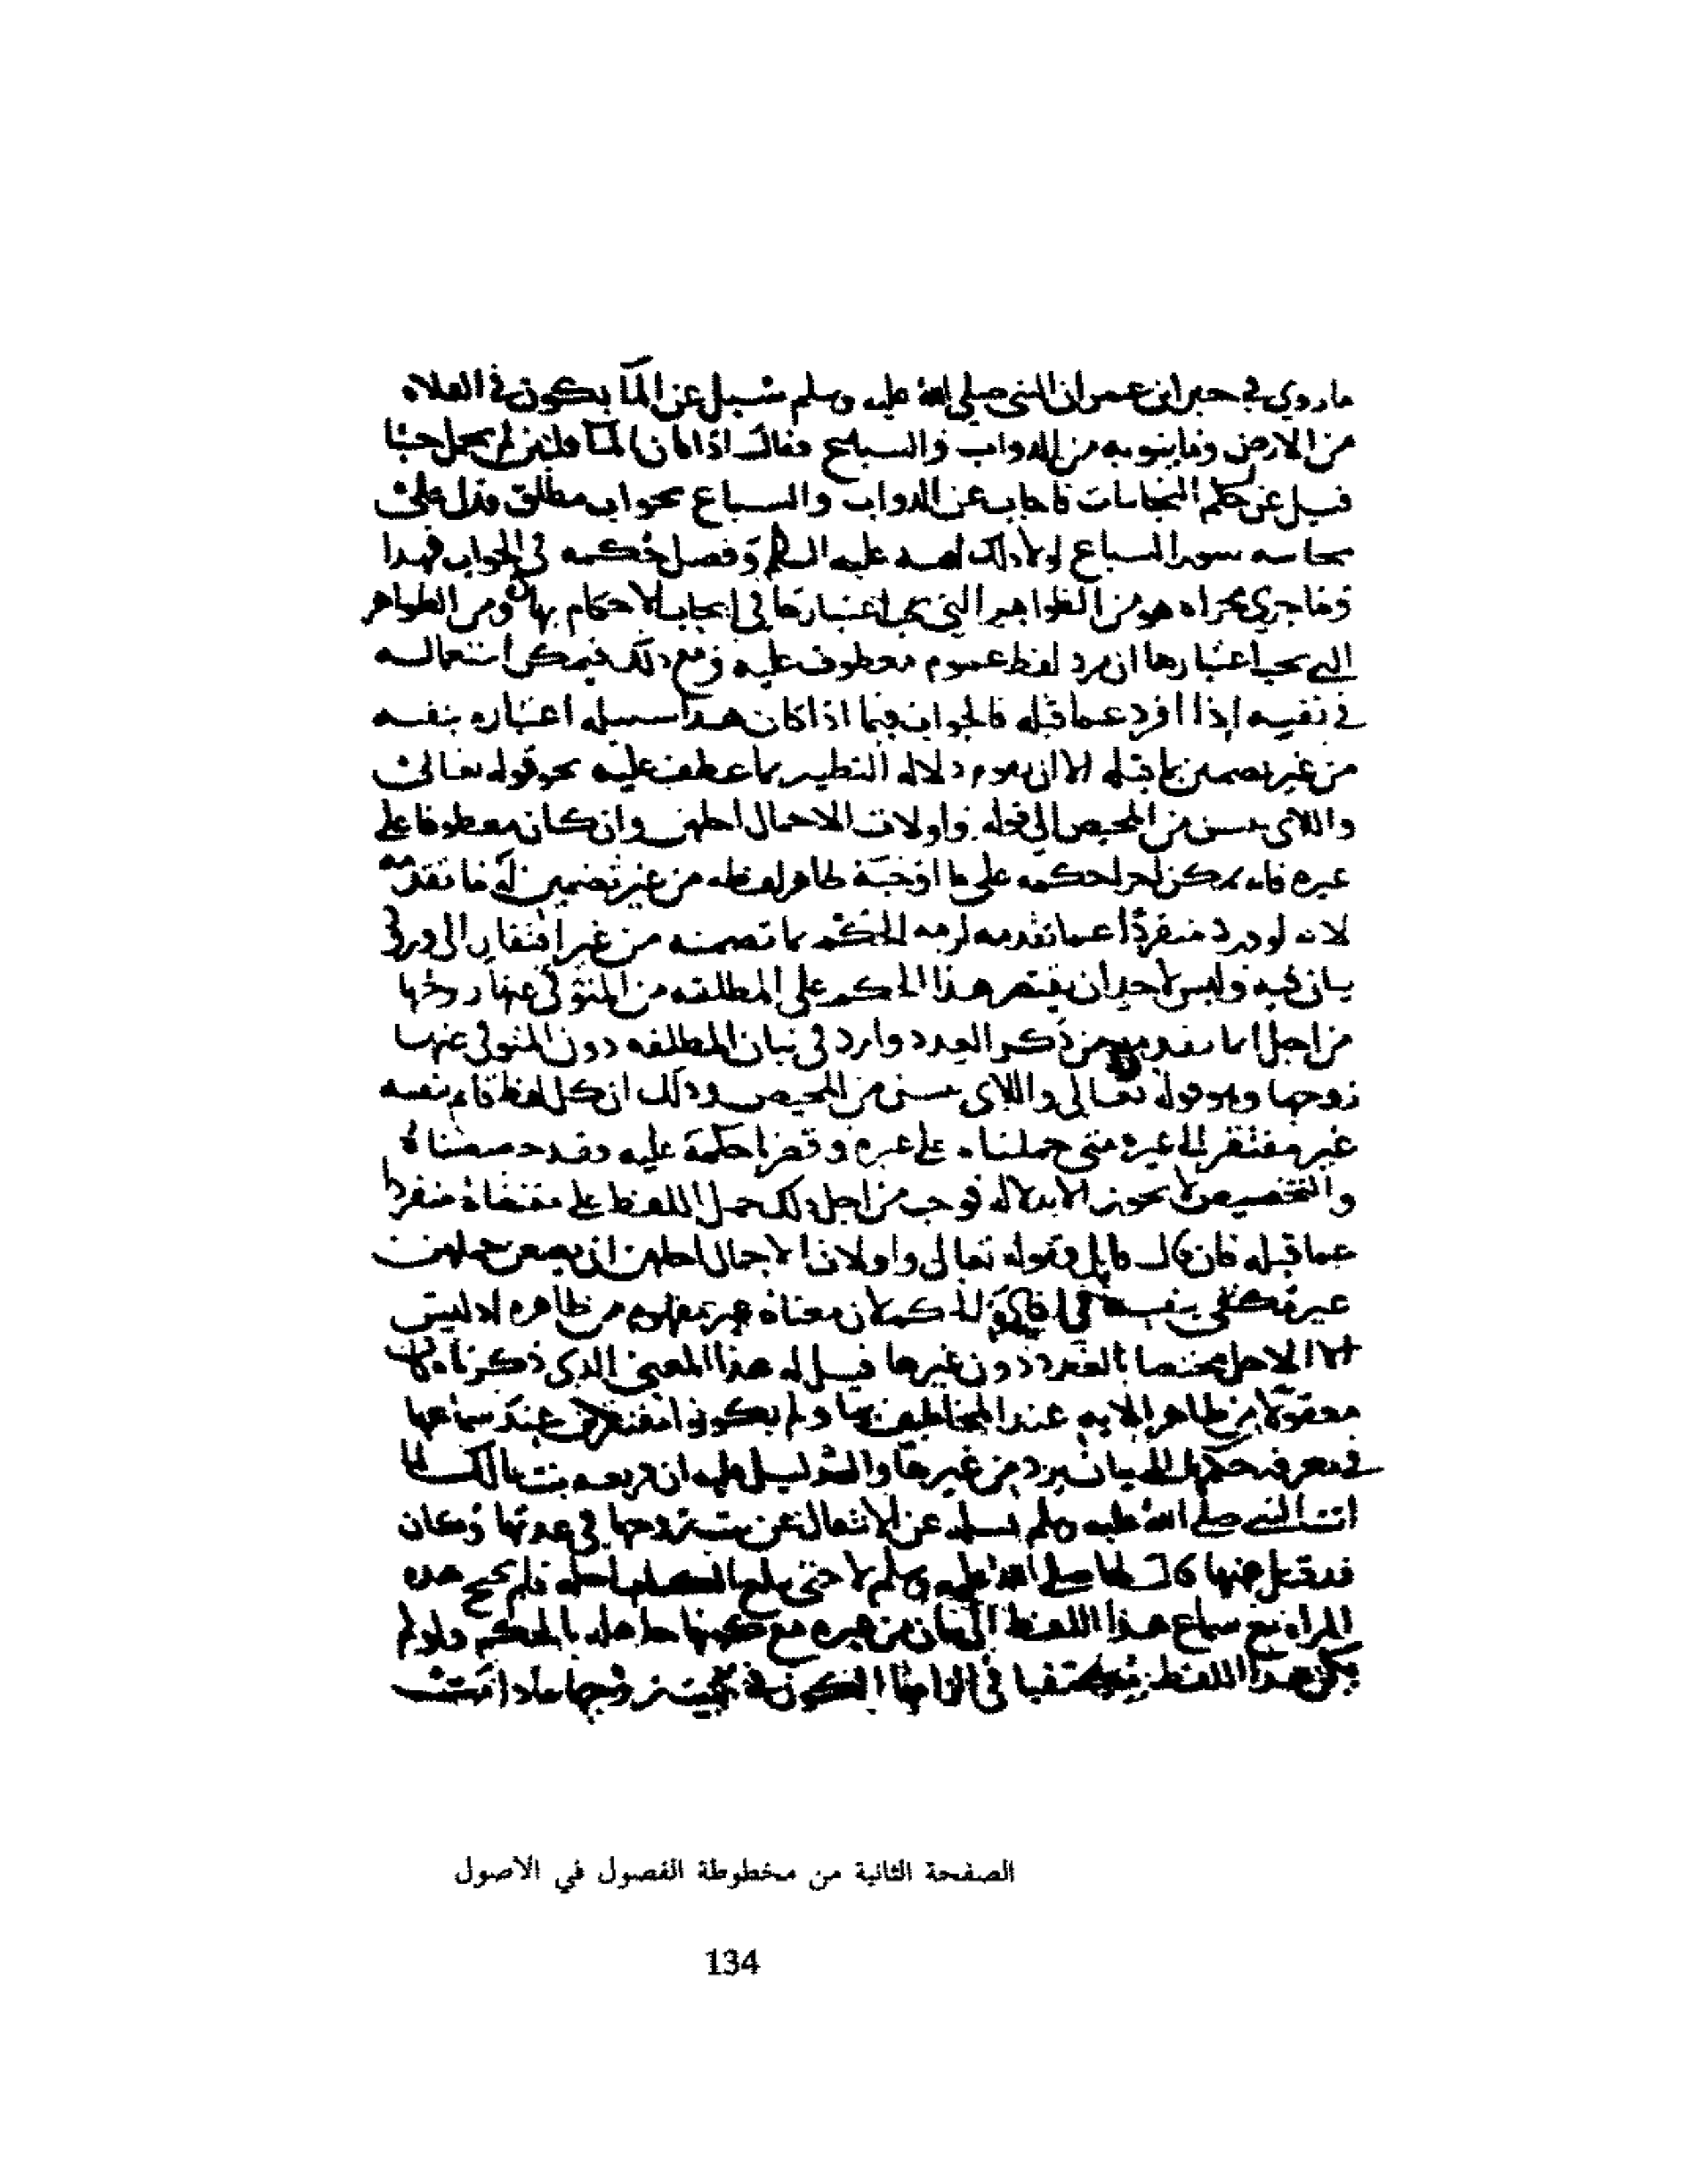 ما روي في خبر ابن عمر ان النبي صلى الله عليه وسلم سئل عن الماء يكون في الفلاه
من الارض وما ينوبه من الدواب والسباع فقال اذا كان الماء قلتين لم يحمل خبثا
فسئل عن حكم النجاسات فاجاب عن الدواب والسباع بجواب مطلق فدل على
نجاسه سور السباع لولا ذلك عليه السلم وفصل حكمه في الجواب فهذا
وما جرى مجراه هو من الظواهر التي يجب اعتبارها في ايجاب الاحكام بها ومن الظواهر
التي يجب اعتبارها ان يرد لفظ عموم معطوف عليه ومع ذلك فيمكن استعماله
في نفسه اذا افرد عما قبله فالجواب فيما اذا كان هذا سبيله اعتباره بنفسه
من غير تضمين بما قبله الا ان تقوم دلاله بما عطف عليه نحو قوله تعالى
واللائي يئسن من المحيض الى قوله واولات الاحمال اجلهن وان كان معطوفا على
غيره فانه يمكن اجرا حكمه على ما اوجبه ظاهر لفظه من غير تضمين له ما تقدمه
لانه لو ورد منفردا عما تقدمه لزمه الحكم بما تضمنه من غير افتقار الى ورود
بيان فيه وليس لاحد ان يقتصر هذا الحكم على المطلقه من المتوفى عنها زوجها
من اجل ان ما تقدمه من ذكر العدد وارد في بيان المطلقه دون المتوفى عنها
زوجها وهو قوله تعالى واللائي يئسن من المحيض وذلك ان كل لفظ قام بنفسه
غير مفتقر الى غيره متى حملناه على غيره وقصرنا حكمه عليه فقد خصصناه
والتخصيص لا يجوز الا بدلاله فوجب من اجل ذلك حمل اللفظ على مقتضاه منفردا
عما قبله فان قال قايل وقوله تعالى واولات الاحمال اجلهن ان يضعن حملهن
غير مكتفى بنفسه في افادة الحكم لان معناه غير مفهوم من ظاهره اذ ليس
الاجل مختصا بالعدد دون غيرها قيل له هذا المعنى الذي ذكرناه كان
معقولا من ظاهر الايه عند المخاطبين بها ولم يكونوا مفتقرين عند سماعها
في معرفه حكمها الى بيان يرد من غيرها والدليل عليه ان فريعه بنت مالك لما
اتت النبي صلى الله عليه وسلم تسله عن الانتقال عن بيت زوجها في عدتها وكان
قد قتل عنها قال لها صلى الله عليه وسلم لا حتى يبلغ الكتاب اجله فلم تحتج هذه
المراه مع سماع هذا اللفظ الى بيان من غيره مع كونها جاهله بالحكم ولو لم
يكن هذا اللفظ مكتفيا في الزامها الكون في بيت زوجها
الصفحة الثانية من مخطوطة الفصول في الاصول
134